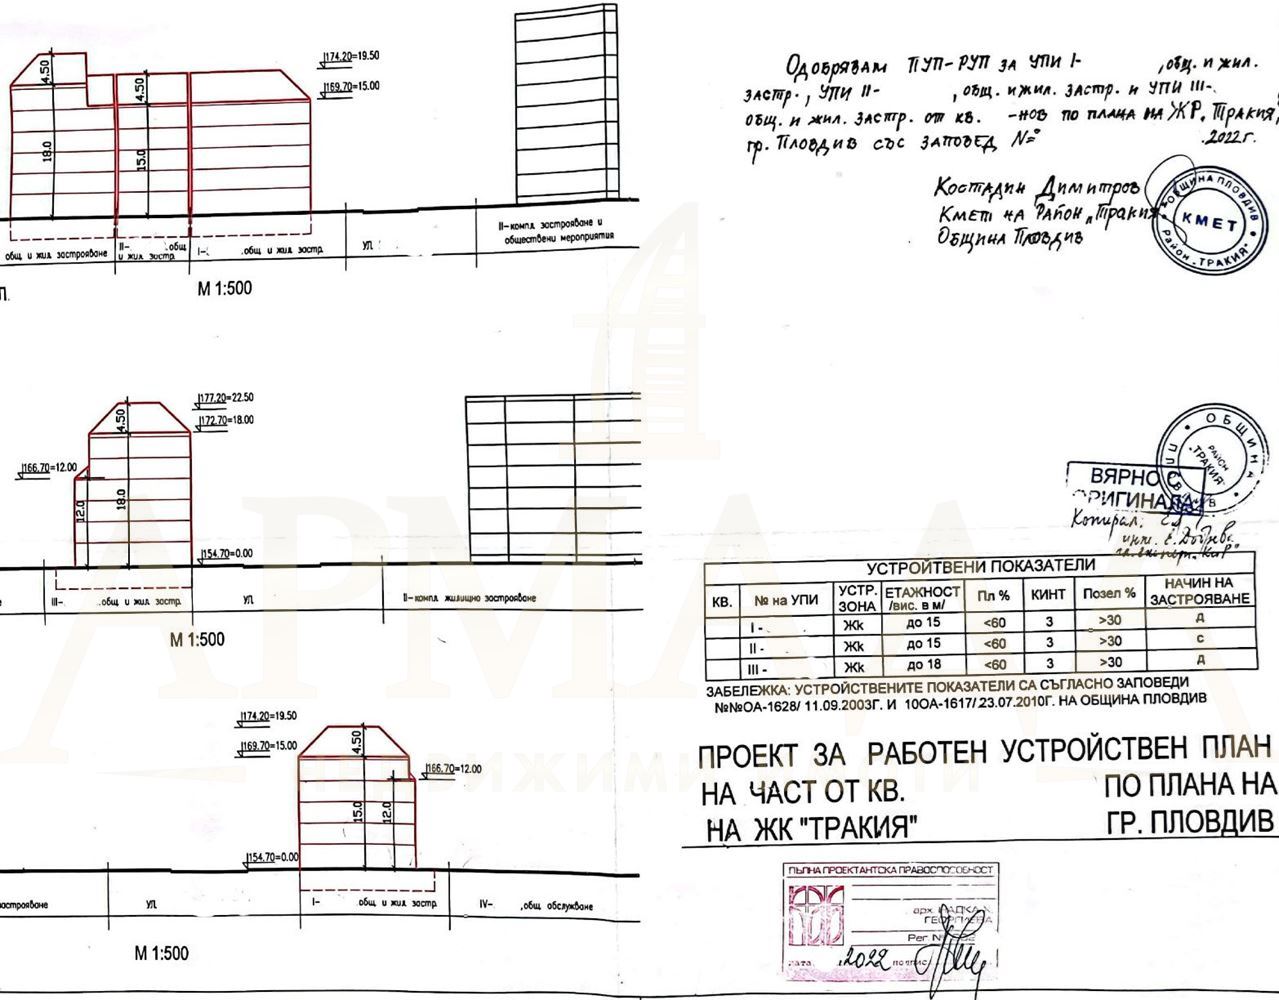 174.20=19.50
169.70=15.00
4.50
4.50
18.0
15.0
общ и жил застрояване
II- общ
и жил застр.
I- общ. и жил застр.
УЛ.
II-компл застрояване и
обществени мероприятия
М 1:500
Одобрявам ПУП-РУП за УПИ I- , общ. и жил.
застр., УПИ II- , общ. и жил. застр. и УПИ III-
общ. и жил. застр. от кв. -нов по плана на ЖР "Тракия",
гр. Пловдив със заповед № .2022г.
Костадин Димитров
Кмет на Район "Тракия"
Община Пловдив
ОБЩИНА ПЛОВДИВ
КМЕТ
Район "ТРАКИЯ"
177.20=22.50
172.70=18.00
166.70=12.00
4.50
18.0
12.0
154.70=0.00
III- общ и жил застр.
УЛ
II-компл жилищно застрояване
М 1:500
ОБЩИНА
РАЙОН
"ТРАКИЯ"
ВЯРНО С
ОРИГИНАЛА
Копирал:
УСТРОЙТВЕНИ ПОКАЗАТЕЛИ
КВ. № на УПИ УСТР. ЗОНА ЕТАЖНОСТ /вис. в м/ Пл % КИНТ Позел % НАЧИН НА ЗАСТРОЯВАНЕ
I - Жк до 15 <60 3 >30 д
II - Жк до 15 <60 3 >30 с
III - Жк до 18 <60 3 >30 д
ЗАБЕЛЕЖКА: УСТРОЙСТВЕНИТЕ ПОКАЗАТЕЛИ СА СЪГЛАСНО ЗАПОВЕДИ
№№ОА-1628/ 11.09.2003Г. И 10ОА-1617/ 23.07.2010Г. НА ОБЩИНА ПЛОВДИВ
174.20=19.50
169.70=15.00
166.70=12.00
4.50
15.0
12.0
154.70=0.00
застрояване
УЛ
I- общ и жил застр.
IV- ,общ обслужване
М 1:500
ПРОЕКТ ЗА РАБОТЕН УСТРОЙСТВЕН ПЛАН
НА ЧАСТ ОТ КВ. ПО ПЛАНА НА
НА ЖК "ТРАКИЯ" ГР. ПЛОВДИВ
ПЪЛНА ПРОЕКТАНТСКА ПРАВОСПОСОБНОСТ
арх. РАДКА
ГЕОРГИЕВА
Рег №
дата 2022 подпис
АРМАДА
НЕДВИЖИМИ ИМОТИ